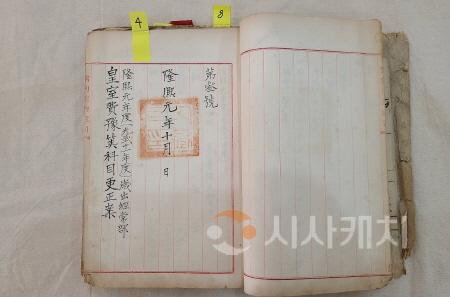 4
8
第參號
隆熙元年十月 日
隆熙元年度(光武十一年度)歲出經常部
皇室費豫筭科目更正案
시사캐치